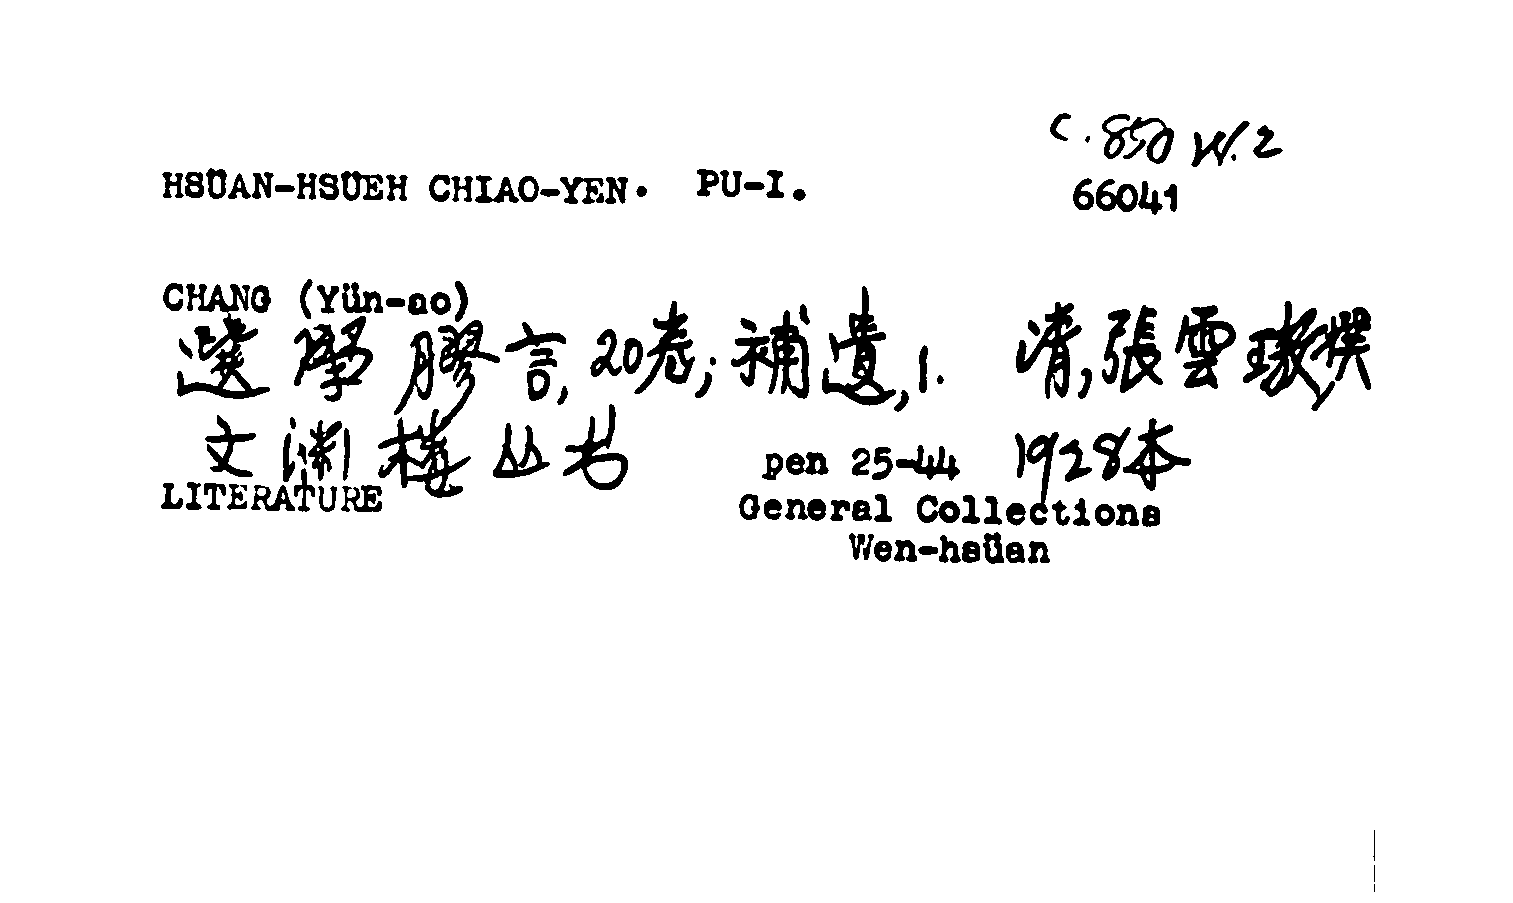 C. 850 W. 2
HSÜAN-HSÜEH CHIAO-YEN. PU-I.
66041
CHANG (Yün-ao)
選學膠言, 20卷; 補遺, 1. 清, 張雲璈撰
文淵樓丛书 pen 25-44 1928本
LITERATURE General Collections
Wen-hsüan